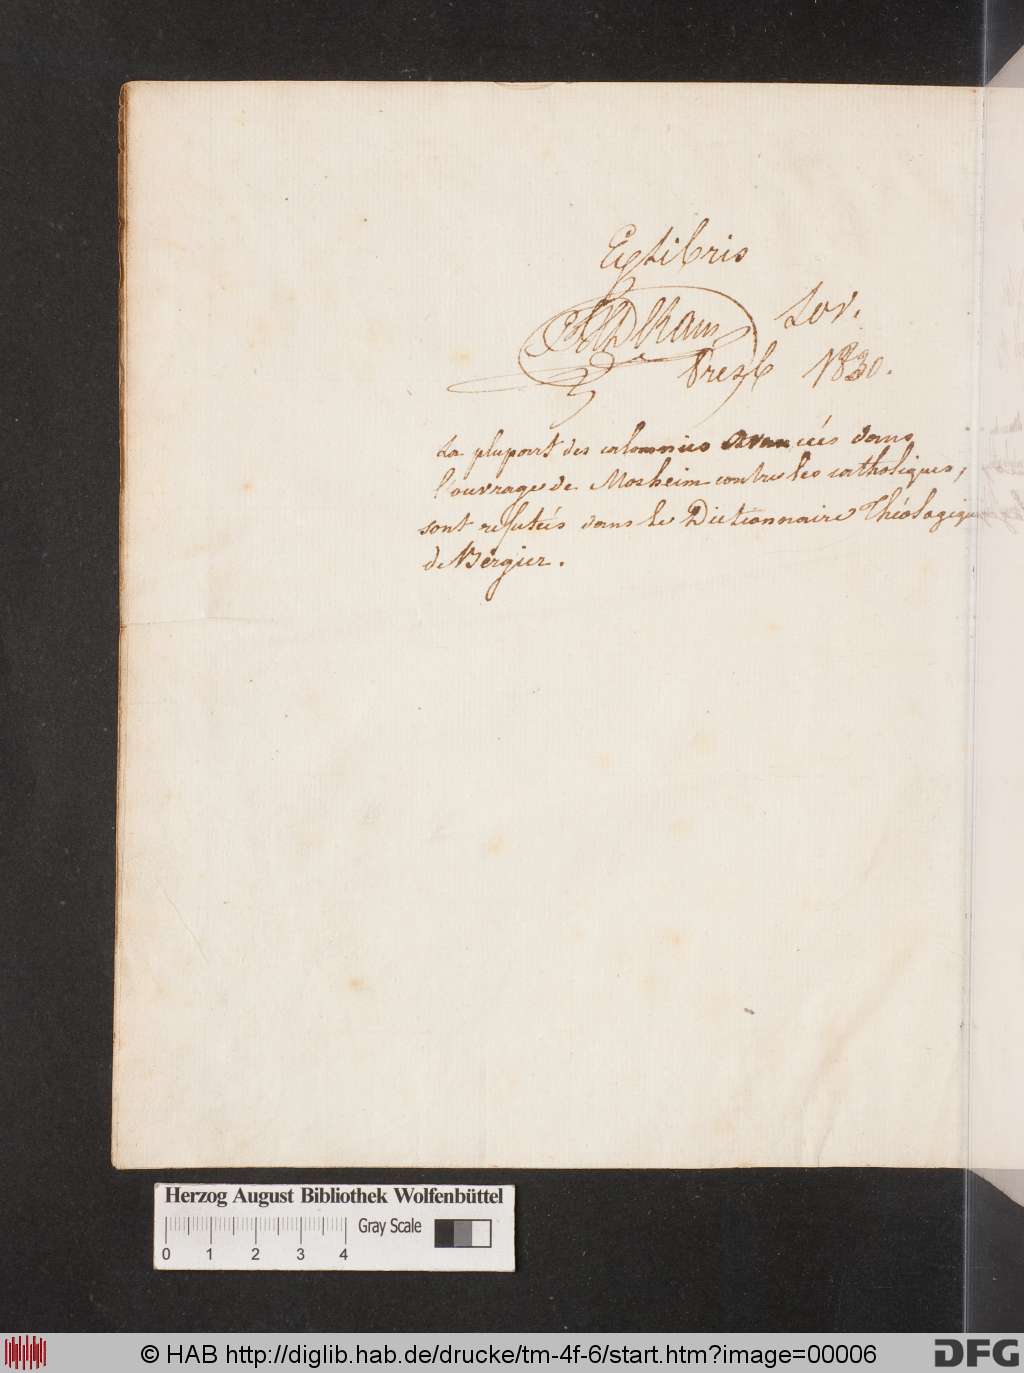 Ex Libris
Lov.
1830.
La plupart des calomnies avancées dans
l'ouvrage de Mosheim contre les catholiques,
sont refutées dans le Dictionnaire Théologique
de Bergier.
Herzog August Bibliothek Wolfenbüttel
Gray Scale
0 1 2 3 4
© HAB http://diglib.hab.de/drucke/tm-4f-6/start.htm?image=00006
DFG